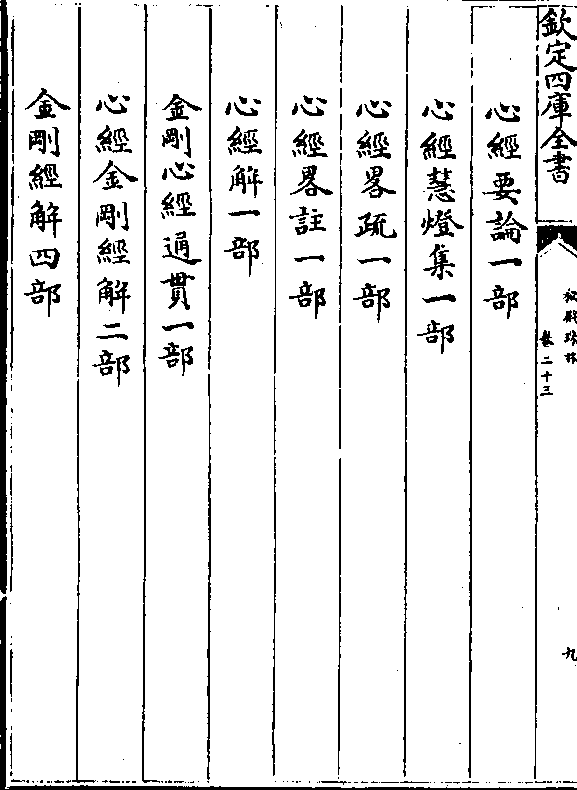 欽定四庫全書
秘殿珠林
卷二十三
九
心經要論一部
心經慧燈集一部
心經畧疏一部
心經畧註一部
心經解一部
金剛心經通貫一部
心經金剛經解二部
金剛經解四部